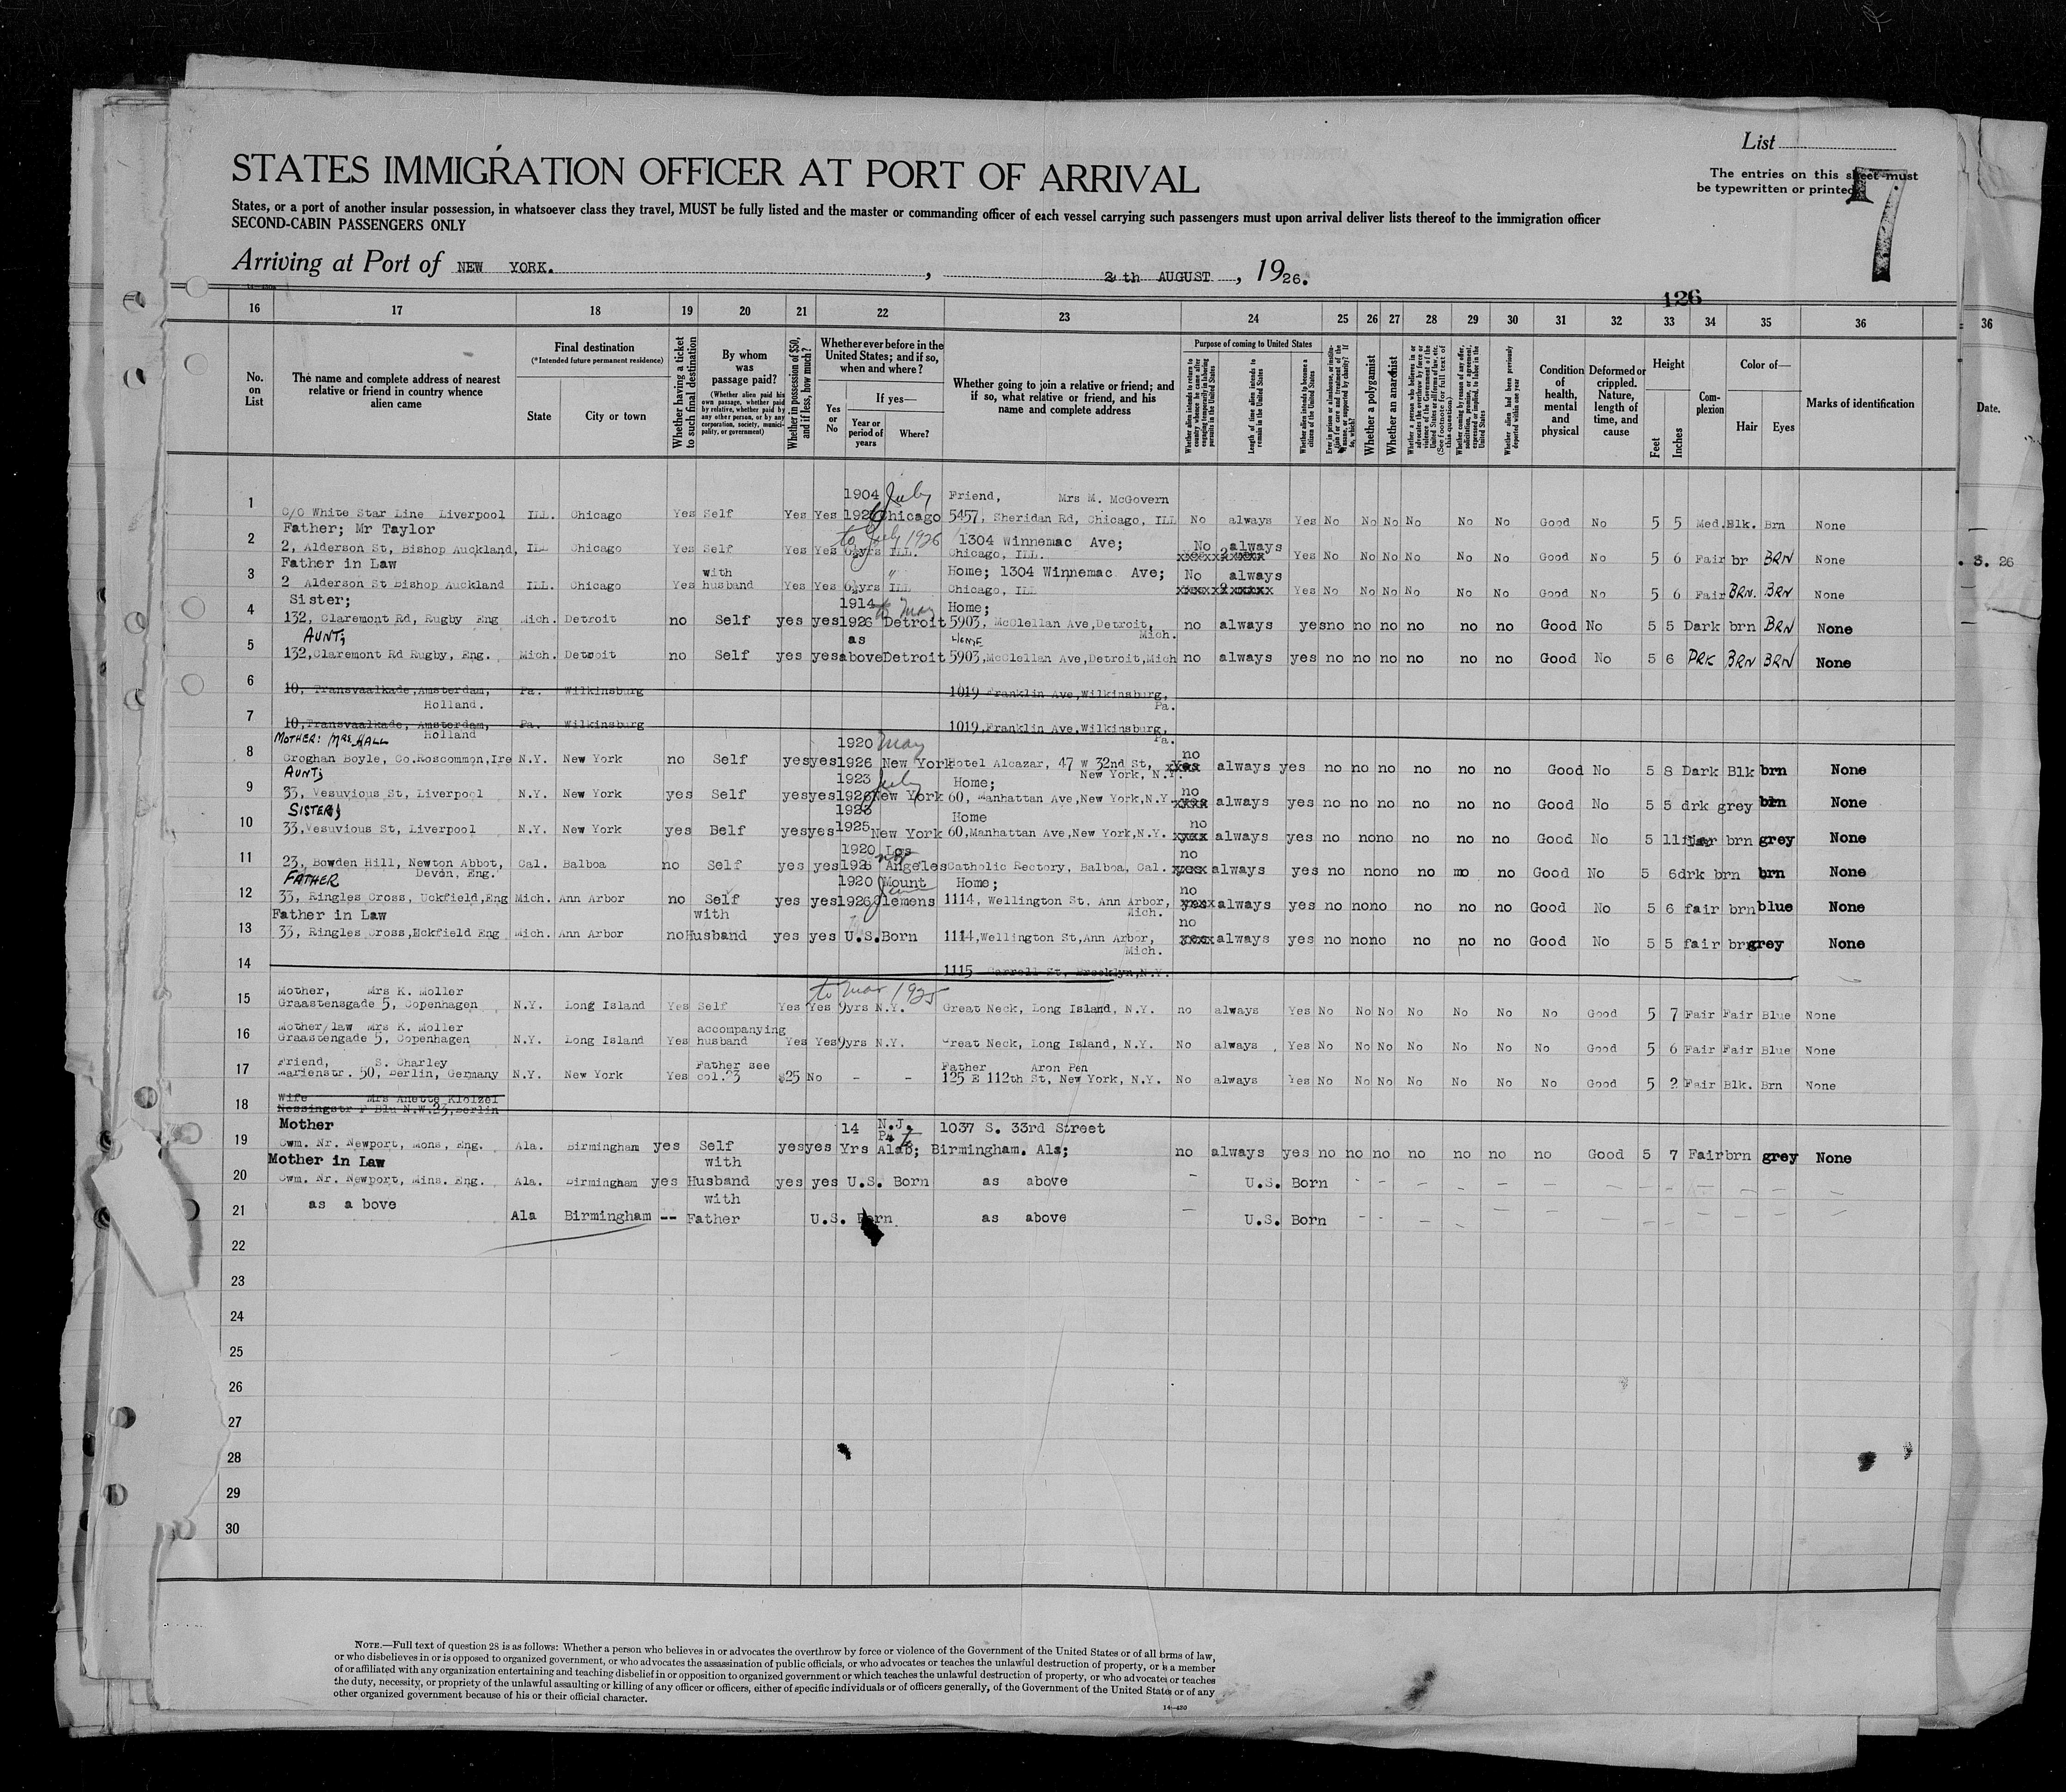 List
The entries on this sheet must
be typewritten or printed
17
STATES IMMIGRATION OFFICER AT PORT OF ARRIVAL
States, or a port of another insular possession, in whatsoever class they travel, MUST be fully listed and the master or commanding officer of each vessel carrying such passengers must upon arrival deliver lists thereof to the immigration officer
SECOND-CABIN PASSENGERS ONLY
Arriving at Port of NEW YORK. , 2 th AUGUST , 1926.
126
16 17 18 19 20 21 22 23 24 25 26 27 28 29 30 31 32 33 34 35 36 36
No. on List
The name and complete address of nearest relative or friend in country whence alien came
Final destination
(*Intended future permanent residence)
State City or town
Whether having a ticket to such final destination
By whom was passage paid?
(Whether alien paid his own passage, whether paid by relative, whether paid by any other person, or by any corporation, society, municipality, or government)
Whether in possession of $50, and if less, how much?
Whether ever before in the United States; and if so, when and where?
Yes or No
If yes—
Year or period of years Where?
Whether going to join a relative or friend; and if so, what relative or friend, and his name and complete address
Purpose of coming to United States
Whether alien intends to return to country whence he came after engaging temporarily in laboring pursuits in the United States
Length of time alien intends to remain in the United States
Whether alien intends to become a citizen of the United States
Whether a polygamist
Whether an anarchist
Whether alien had been previously deported within one year
Condition of health, mental and physical
Deformed or crippled. Nature, length of time, and cause
Height
Feet Inches
Complexion
Color of—
Hair Eyes
Marks of identification
Date.
1904 July Friend, Mrs M. McGovern
1 C/O White Star Line Liverpool ILL. Chicago Yes Self Yes Yes 1926 Chicago 5457, Sheridan Rd, Chicago, ILL No always Yes No No No No No No Good No 5 5 Med. Blk. Brn None
Father; Mr Taylor to July 1926 1304 Winnemac Ave; No always
2 2, Alderson St, Bishop Auckland, ILL Chicago Yes Self Yes Yes 6½yrs ILL. Chicago, ILL. Yes No No No No No No Good No 5 6 Fair br BRN None
. S. 26
Father in Law with " Home; 1304 Winnemac Ave; No always
3 2 Alderson St Bishop Auckland ILL. Chicago Yes husband Yes Yes 6½yrs ILL Chicago, ILL Yes No No No No No No Good No 5 6 Fair BRN. BRN None
Sister; 1914 to May Home;
4 132, Claremont Rd, Rugby Eng Mich. Detroit no Self yes yes 1926 Detroit 5903, McClellan Ave, Detroit, Mich. no always yes no no no no no no Good No 5 5 Dark brn BRN None
AUNT; as HOME
5 132, Claremont Rd Rugby, Eng. Mich. Detroit no Self yes yes above Detroit 5903, McClellan Ave, Detroit, Mich no always yes no no no no no no Good No 5 6 DRK BRN BRN None
6 10, Transvaalkade, Amsterdam, Holland. Pa. Wilkinsburg 1019 Franklin Ave, Wilkinsburg, Pa.
7 10, Transvaalkade, Amsterdam, Holland Pa. Wilkinsburg 1019, Franklin Ave, Wilkinsburg, Pa.
MOTHER: MRS HALL 1920 May no
8 Croghan Boyle, Co. Roscommon, Ire N.Y. New York no Self yes yes 1926 New York Hotel Alcazar, 47 W 32nd St, New York, N.Y. always yes no no no no no no Good No 5 8 Dark Blk brn None
AUNT; 1923 July Home; no
9 33, Vesuvious St, Liverpool N.Y. New York yes Self yes yes 1926 New York 60, Manhattan Ave, New York, N.Y. always yes no no no no no no Good No 5 5 drk grey brn None
SISTER; Home no
10 33, Vesuvious St, Liverpool N.Y. New York yes Belf yes yes 1925 New York 60, Manhattan Ave, New York, N.Y. always yes no no no no no no Good No 5 brn grey None
1920 Los no
11 23, Bowden Hill, Newton Abbot, Devon, Eng. Cal. Balboa no Self yes yes 1926 Angeles Catholic Rectory, Balboa, Cal. always yes no no no no mo no Good No 5 6 drk brn brn None
FATHER 1920 Mount Home; no
12 33, Ringles Cross, Uckfield, Eng Mich. Ann Arbor no Self yes yes 1926 Clemens 1114, Wellington St, Ann Arbor, Mich. always yes no no no no no no Good No 5 6 fair brn blue None
Father in Law with no
13 33, Ringles Cross, Eckfield Eng Mich. Ann Arbor no Husband yes yes U.S. Born 1114, Wellington St, Ann Arbor, Mich. always yes no no no no no no Good No 5 5 fair brn grey None
14 1115 Carroll St, Brooklyn, N.Y.
Mother, Mrs K. Moller to Mar 1925
15 Graastensgade 5, Copenhagen N.Y. Long Island Yes Self Yes Yes 9yrs N.Y. Great Neck, Long Island, N.Y. no always Yes No No No No No No No Good 5 7 Fair Fair Blue None
Mother/law Mrs K. Moller accompanying
16 Graastengade 5, Copenhagen N.Y. Long Island Yes husband Yes Yes 9yrs N.Y. Great Neck, Long Island, N.Y. No always Yes No No No No No No No Good 5 6 Fair Fair Blue None
Friend, S. Charley Father see Father Aron Pen
17 Marienstr. 50, Berlin, Germany N.Y. New York Yes col.23 $25 No - - 125 E 112th St, New York, N.Y. No always Yes No No No No No No No Good 5 2 Fair Blk. Brn None
18 Wife Mrs Anette Klotzel
N.W.23, Berlin
Mother 14 N.J. Pa 1037 S. 33rd Street
19 Cwm. Nr. Newport, Mons, Eng. Ala. Birmingham yes Self yes yes Yrs Alab; Birmingham. Ala; no always yes no no no no no no no Good 5 7 Fair brn grey None
Mother in Law with
20 Cwm. Nr. Newport, Mins. Eng. Ala. Birmingham yes Husband yes yes U.S. Born as above U.S. Born
as a bove with
21 Ala Birmingham -- Father U.S. Born as above U.S. Born
22
23
24
25
26
27
28
29
30
NOTE.—Full text of question 28 is as follows: Whether a person who believes in or advocates the overthrow by force or violence of the Government of the United States or of all forms of law,
or who disbelieves in or is opposed to organized government, or who advocates the assassination of public officials, or who advocates or teaches the unlawful destruction of property, or is a member
of or affiliated with any organization entertaining and teaching disbelief in or opposition to organized government or which teaches the unlawful destruction of property, or who advocates or teaches
the duty, necessity, or propriety of the unlawful assaulting or killing of any officer or officers, either of specific individuals or of officers generally, of the Government of the United States or of any
other organized government because of his or their official character.
14-420